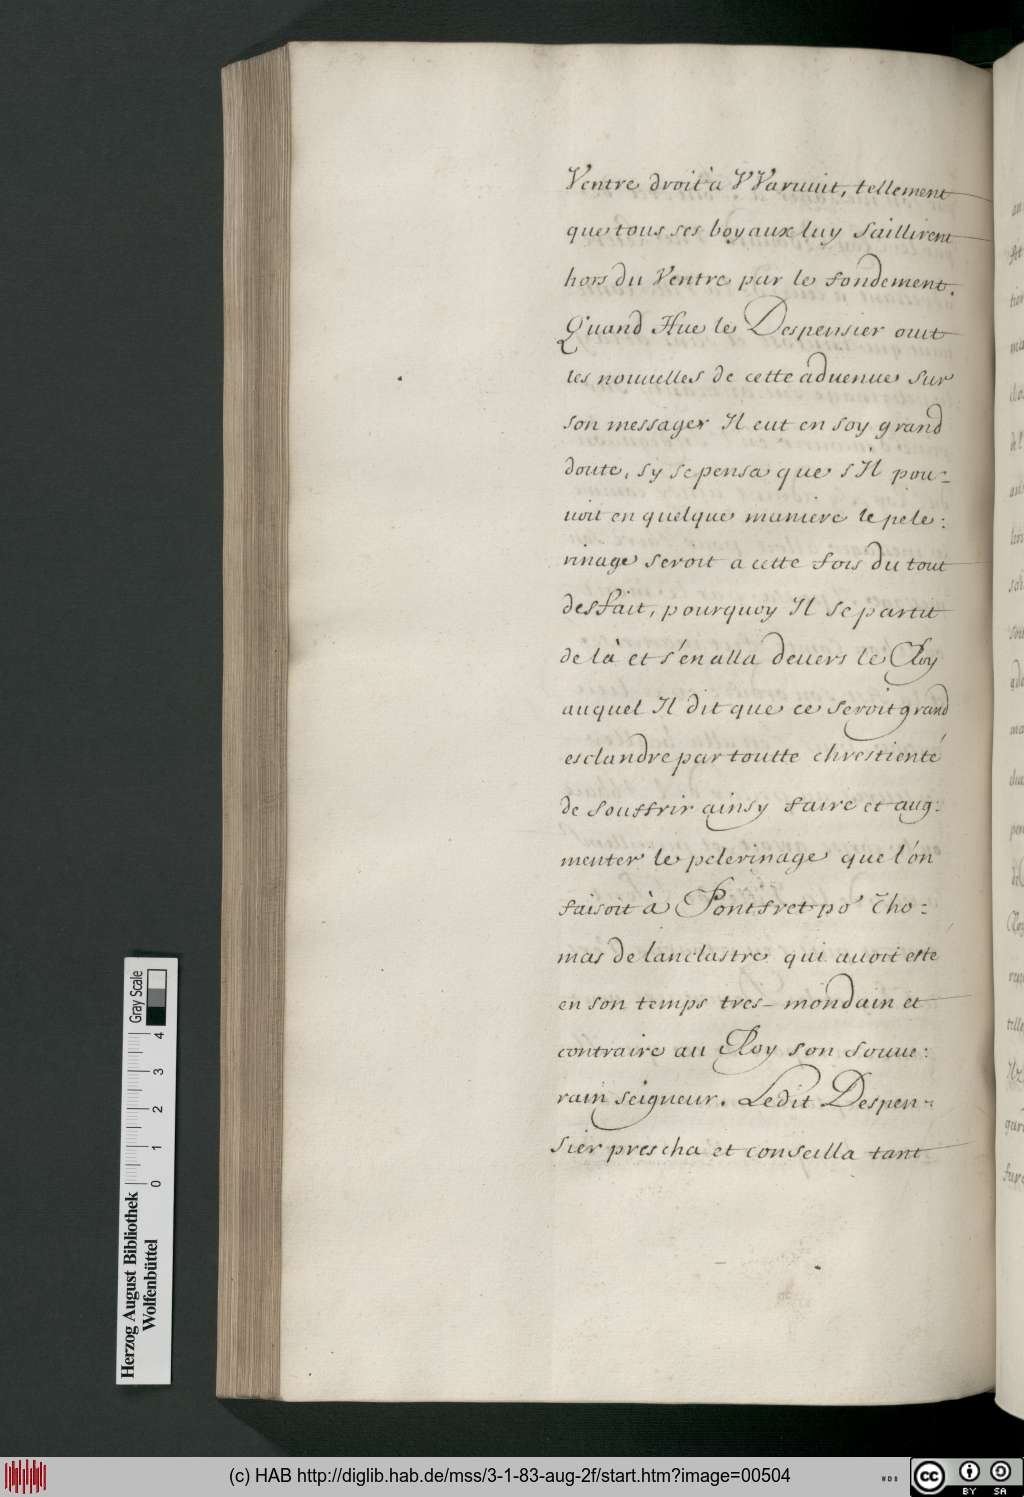 Ventre droit à VVaruuit, tellement
que tous ses boyaux luy saillirent
hors du Ventre par le fondement.
Quand Hue le Despensier ouit
les nouuelles de cette aduenue sur
son messager Il eut en soy grand
doute, sy se pensa que s'Il pou-
uoit en quelque maniere le pele:
rinage seroit a cette fois du tout
desfait, pourquoy Il se partit
de là et s'en alla deuers le Roy
auquel Il dit que ce seroit grand
esclandre par toutte chrestienté
de souffrir ainsy faire et aug:
menter le pelerinage que l'on
faisoit à Pontfret po' Tho-
mas de lanclastre qui auoit esté
en son temps tres-mondain et
contraire au Roy son souue:
rain seigneur. Ledit Despen-
sier prescha et conseilla tant
Gray Scale
0 1 2 3 4
Herzog August Bibliothek
Wolfenbüttel
(c) HAB http://diglib.hab.de/mss/3-1-83-aug-2f/start.htm?image=00504
WDB
cc
BY SA